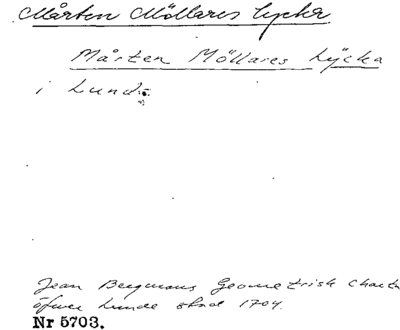 Mårten Möllares lycka
Mårten Möllares Lÿcka
i Lund.
Jean Bergmans Geometrisk Charta
öfwer Lunds stad 1704.
Nr 5703.